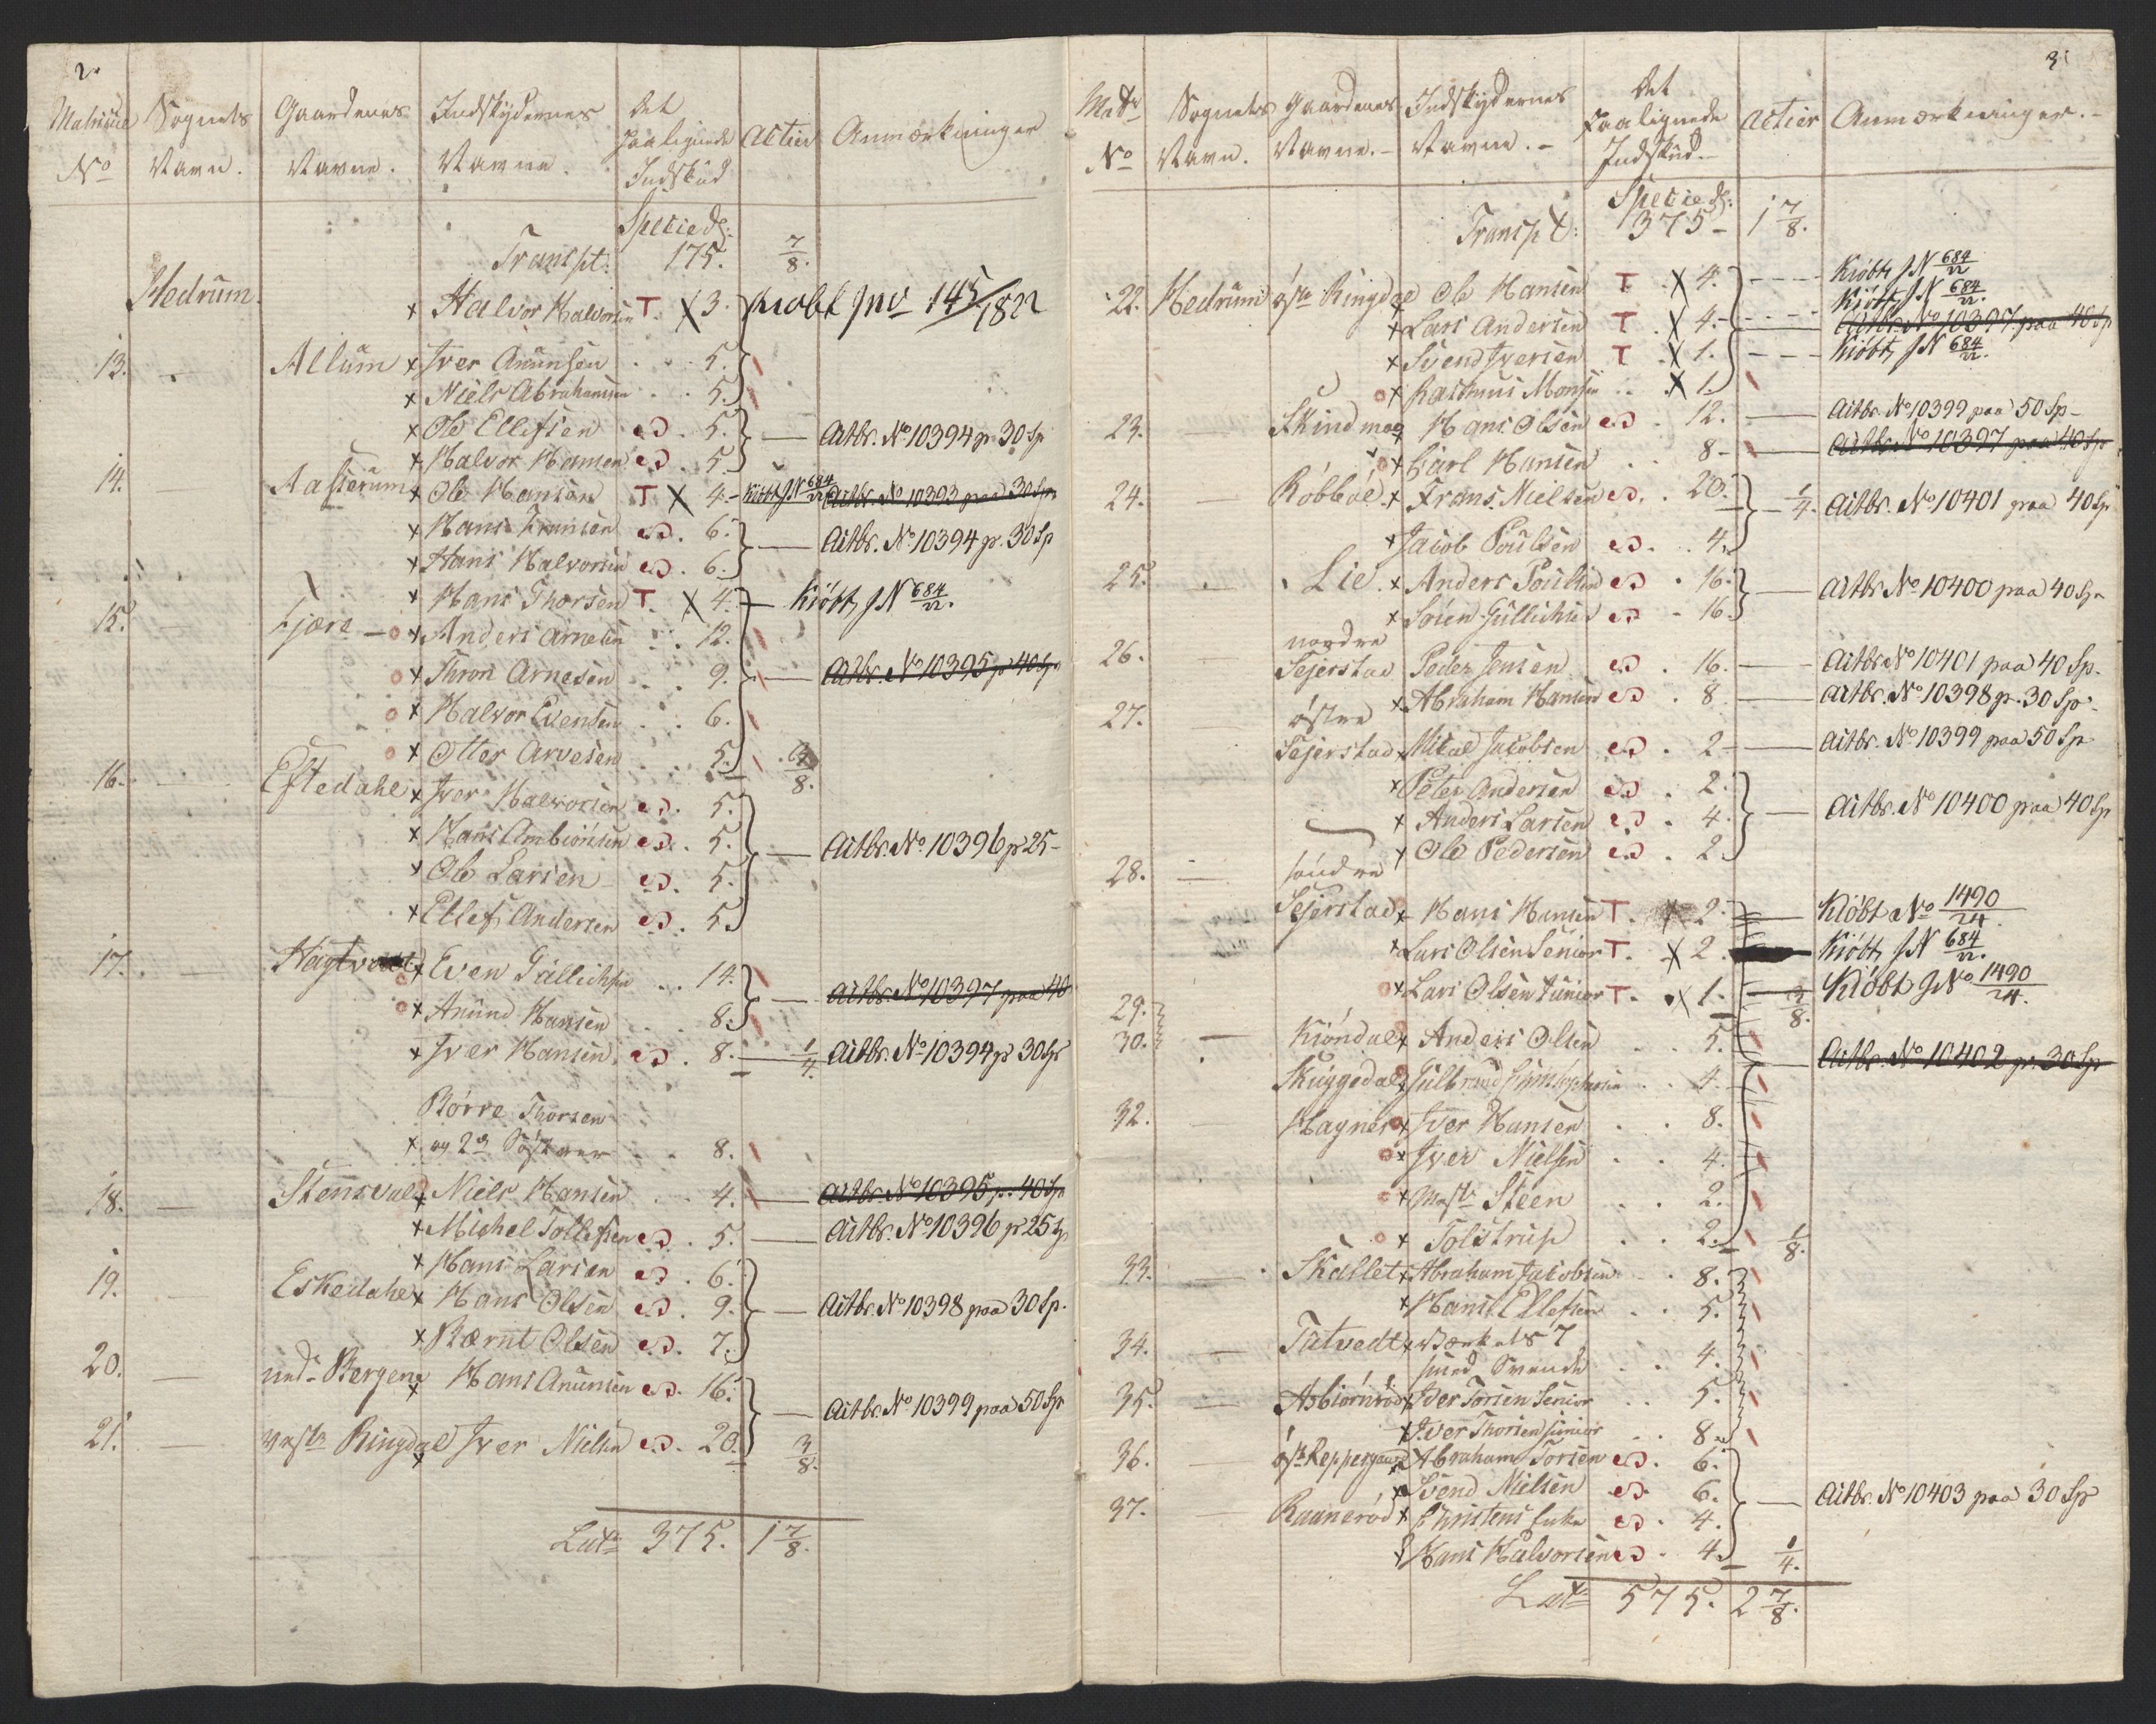 2.
Matricul Sognets Gaardenes Indskydernes Det Paalignede Actier Anmærkninger
No Navn. Navne. Navne. Indskud
Specied:
Transpt: 175. 7/8.
Hedrum. x Halvor Halvorsen T. X 3. Kiøbt JNo 145/1822
13. Allum x Iver Anunsen 5.
x Niels Abrahamsen 5.
x Ole Ellefsen 5. — Actbr. No 10394 p. 30 Sp
x Halvor Hansen 5.
14. — Aasserum x Ole Hansen T X 4. Kiøbt JN 684/22 Actbr. No 10393 paa 30 Sp
x Hans Fransen 6. — Actbr. No 10394 p. 30 Sp
x Hans Halvorsen 6.
x Hans Thorsen T. X 4. — Kiøbt, JN 684/22.
15. — Fjære x Anders Arnesen 12.
x Thron Arnesen 9. — Actbr. No 10395 p 40 Sp
x Halvor Evensen 6.
x Otter Arvesen 5. /8.
16. — Eftedahl x Iver Halvorsen 5.
x Hans Ambiörnsen 5. — Actbr. No 10396 p 25 -
x Ole Larsen 5.
x Ellef Andersen 5.
17. — x Even Gullichsen 14. — Actbr. No 10397 paa 40
x Anund Hansen 8.
x Iver Hansen 8. — 1/4. Actbr. No 10394 p 30 Sp
Börre Thorsen
x og 2de Söstre 8.
18. — x Niels Hansen 4. — Actbr. No 10395 p. 40 Sp
x Michel Tollefsen 5. — Actbr. No 10396 p 25 Sp
x Hans Larsen 6.
19. — Eskedahl x Hans Olsen 9. — Actbr. No 10398 paa 30 Sp.
x Bærnt Olsen 7.
20. — Bergene x Hans Anunsen 16.
— Actbr. No 10399 paa 50 Sp
21. — Ringdal x Iver Nielsen 20. 3/8.
Lat: 375. 1 7/8.
3.
Matr Sognets Gaardenes Indskydernes Det Paalignede Actier Anmærkninger.
No Navn. Navne. Navne. Indskud.
Specied:
Transpt: 375 - 1 7/8.
22. Hedrum Ringdal Ole Hansen T X 4. Kiøbt, JN 684/22
x Lars Andersen T. X 4. Kiøbt, JN 684/22.
Actbr. No 10397 paa 40 Sp
x Svend Iversen T X 1. Kiøbt, JN 684/22.
x Rasmus Monsen X 1.
23. — Skindmog Hans Olsen 12. — Actbr. No 10399 paa 50 Sp -
x Carl Hansen 8 - — Actbr. No 10397 paa 40 Sp
24. — x Frans Nielsen 20. 1/4. Actbr. No 10401 paa 40 Sp
x Jacob Poulsen 4.
25. Lie. x Anders Poulsen 16. — Actbr No 10400 paa 40 Sp
x Sören Gullichsen 16.
26. — nordre
Sejerstad Peder Jensen 16. — Actbr No 10401 paa 40 Sp.
x Abraham Hansen 8 — Actbr. No 10398 p. 30 Sp.
27. — östre
Sejerstad x Mikal Jacobsen 2 - — Actbr. No 10399 paa 50 Sp
x Peter Andersen 2.
x Anders Larsen 4. — Actbr. No 10400 paa 40 Sp
x Ole Pedersen 2
28. — söndre
Sejerstad x Hans Hansen T. X 2. Kiøbt No 1490/24.
x Lars Olsen Senior T. X 2. Kiøbt, JN 684/22.
x Lars Olsen Junior T. X 1. 3/8. Kiøbt JNo 1490/24.
29.
30. — Kiöndal x Anders Olsen 5. — Actbr. No 10402 p. 30 Sp
Skuggedal x Gulbrand 4.
32. — Hagnes x Iver Hansen 8.
x Iver Nielsen 4.
x Steen 2.
x Tolstrup 2. 1/8.
33. — Skallet x Abraham Jacobsen 8.
x Hans Ellefsen 5.
34. — Tutvedt x
4.
35. — Asbiörnröd x Iver Torsen Senior 5.
x Iver Thorsen junior 8
36. — x Abraham Torsen 6.
x Svend Nielsen 6. — Actbr. No 10403 paa 30 Sp
37. — Raaneröd x Christens Enke 4.
x Hans Halvorsen 4. 1/4.
Lat: 575. 2 7/8.